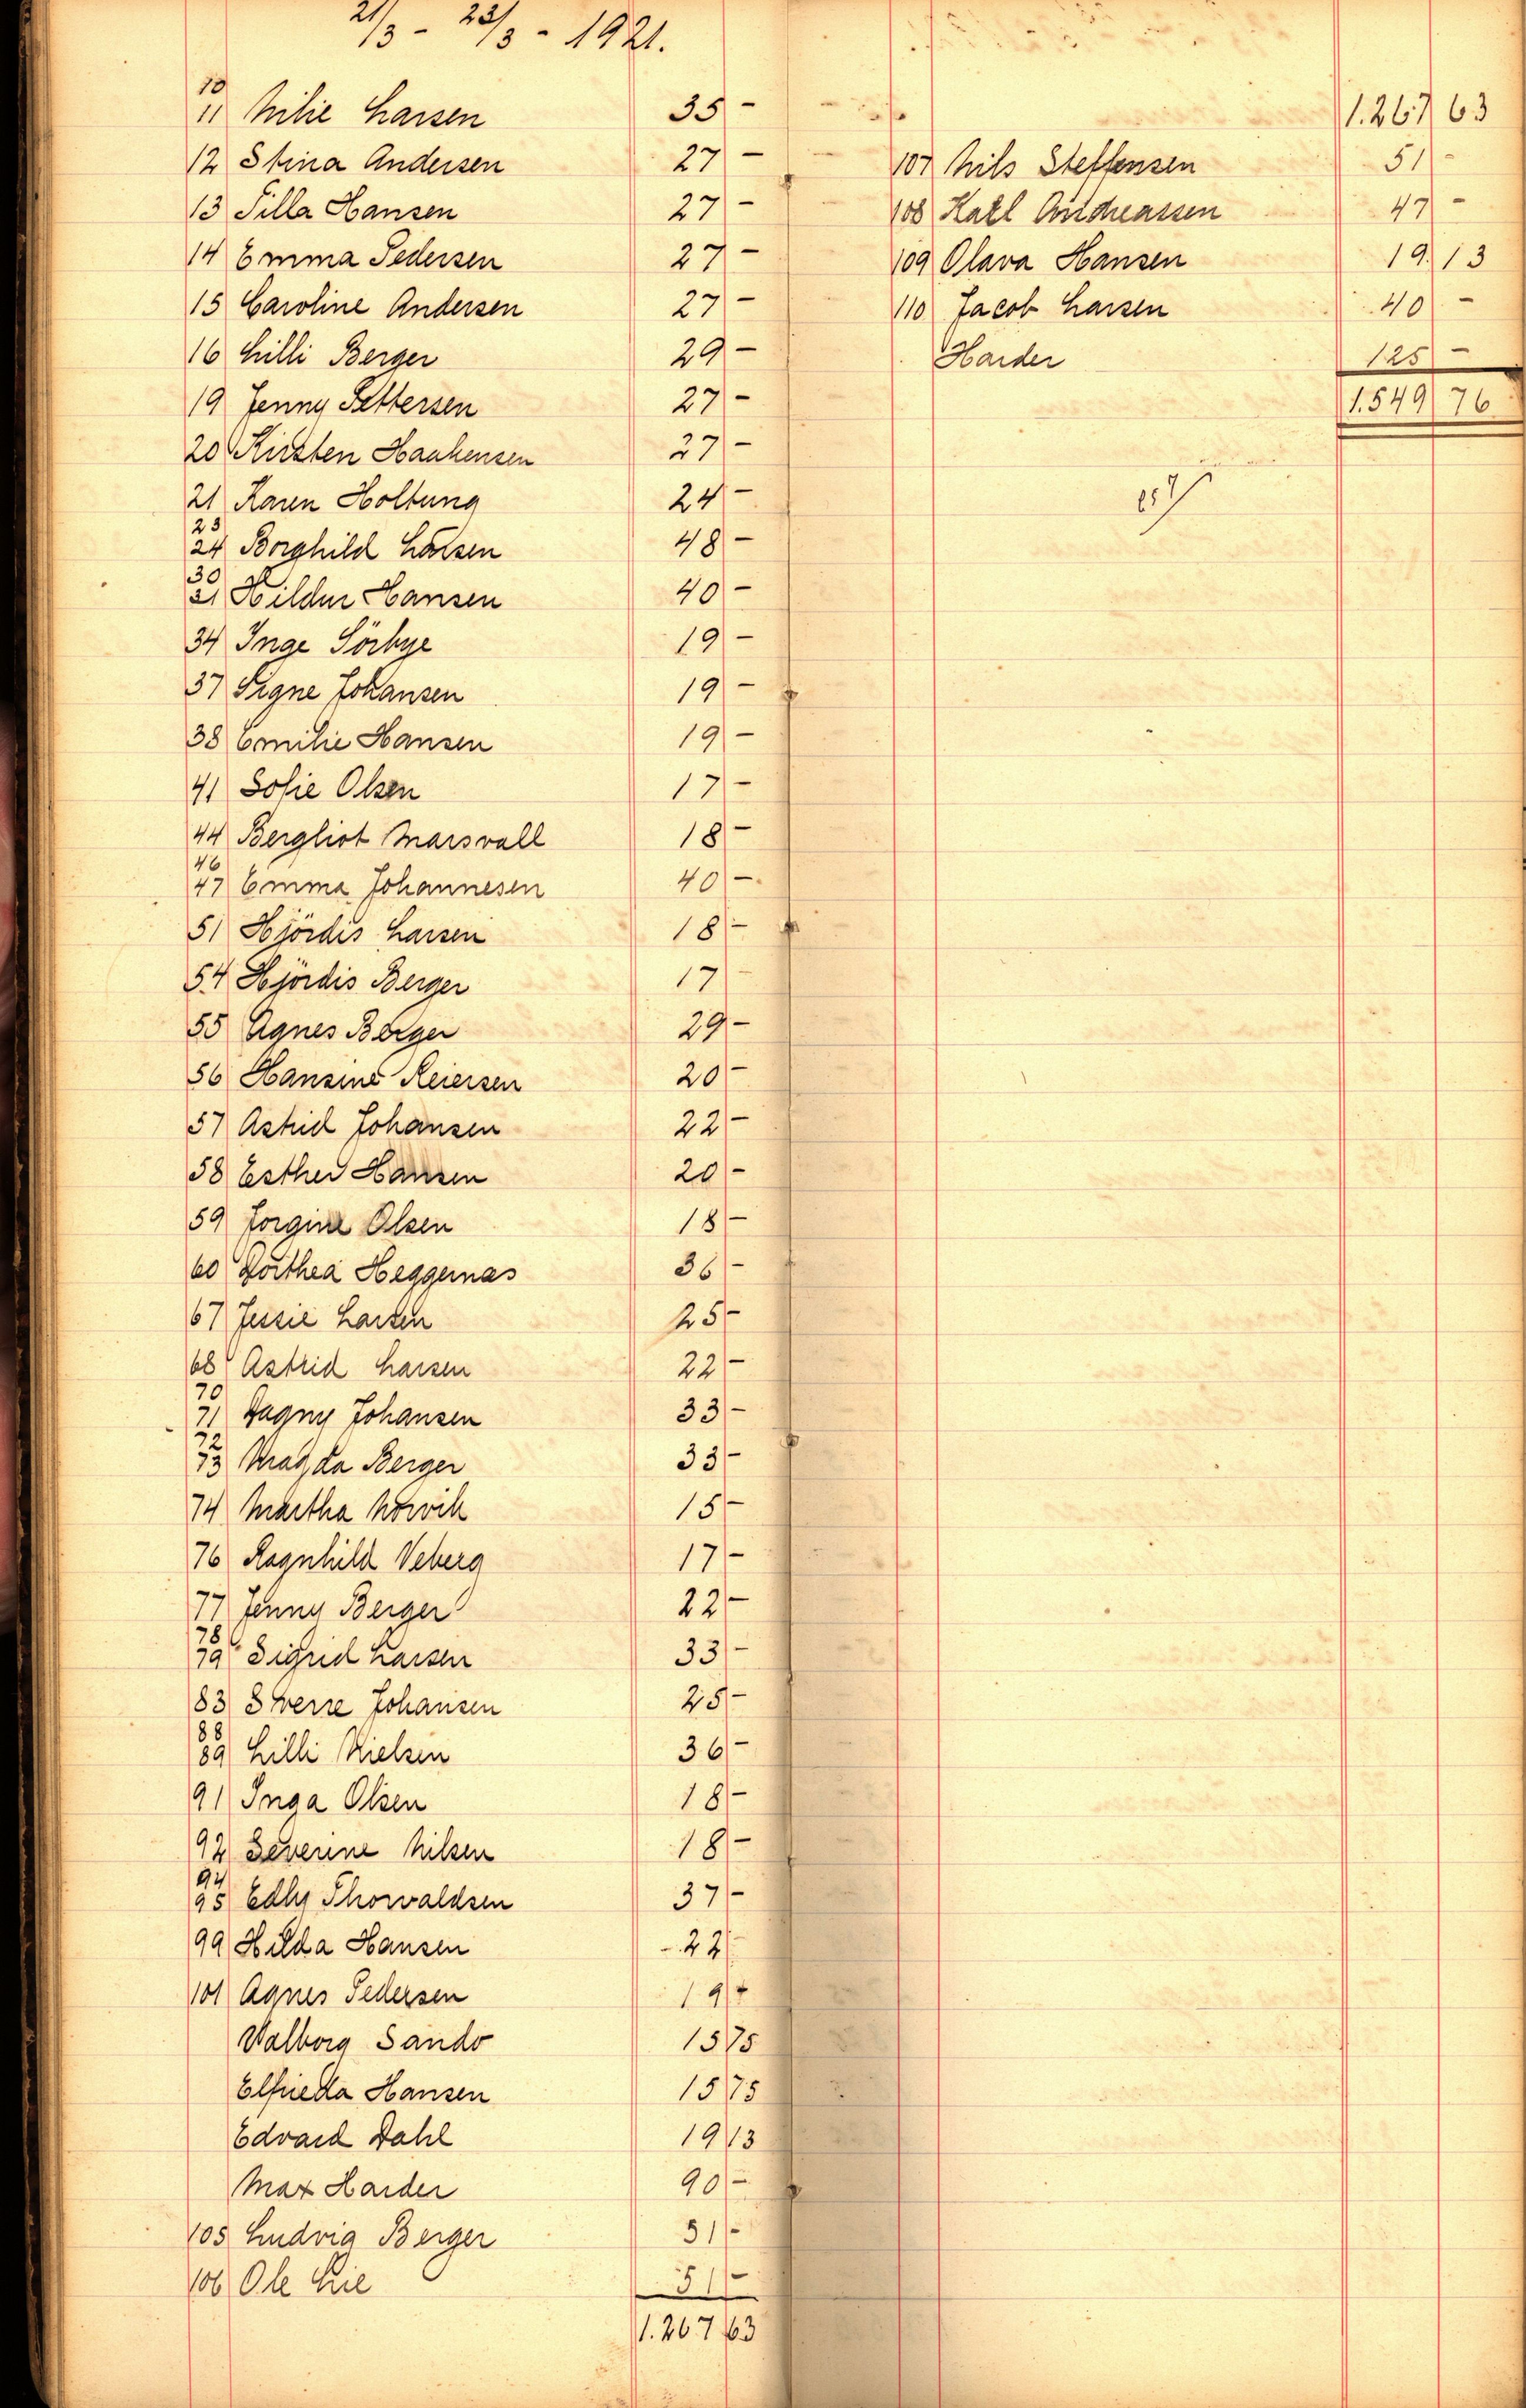 21/3 - 23/3 - 1921.
10
11 Milie Larsen 35 -
12 Stina Andersen 27 -
13 Silla Hansen 27 -
14 Emma Pedersen 27 -
15 Caroline Andersen 27 -
16 Lilli Berger 29 -
19 Jenny Pettersen 27 -
20 Kirsten Haakensen 27 -
21 Karen Holtung 24 -
23
24 Borghild Larsen 48 -
30
31 Hildur Hansen 40 -
34 Inge Sörbye 19 -
37 Signe Johansen 19 -
38 Emilie Hansen 19 -
41 Sofie Olsen 17 -
44 Bergliot Marsvall 18 -
46
47 Emma Johannesen 40 -
51 Hjördis Larsen 18 -
54 Hjördis Berger 17
55 Agnes Berger 29 -
56 Hansine Reiersen 20 -
57 Astrid Johansen 22 -
58 Esther Hansen 20 -
59 Jorgine Olsen 18 -
60 Dorthea Heggernas 36 -
67 Jessie Larsen 25 -
68 Astrid Larsen 22 -
70
71 Dagny Johansen 33 -
72
73 Magda Berger 33 -
74 Martha 15 -
76 Ragnhild Veberg 17 -
77 Jenny Berger 22 -
78
79 Sigrid Larsen 33 -
83 Sverre Johansen 25 -
88
89 Lilli Nielsen 36 -
91 Inga Olsen 18 -
92 Severine Nilsen 18 -
94
95 Edly Thorvaldsen 37 -
99 Hilda Hansen 22
101 Agnes Pedersen 19 -
Valborg Sando 15 75
Elfrieda Hansen 15 75
Edvard Dahl 19 13
Max Harder 90 -
105 Ludvig Berger 51 -
106 Ole Lie 51 -
1.267 63
1.267 63
107 Nils Steffensen 51 -
108 Karl Andreassen 47 -
109 Olava Hansen 19 13
110 Jacob Larsen 40 -
Harder 125 -
1.549 76